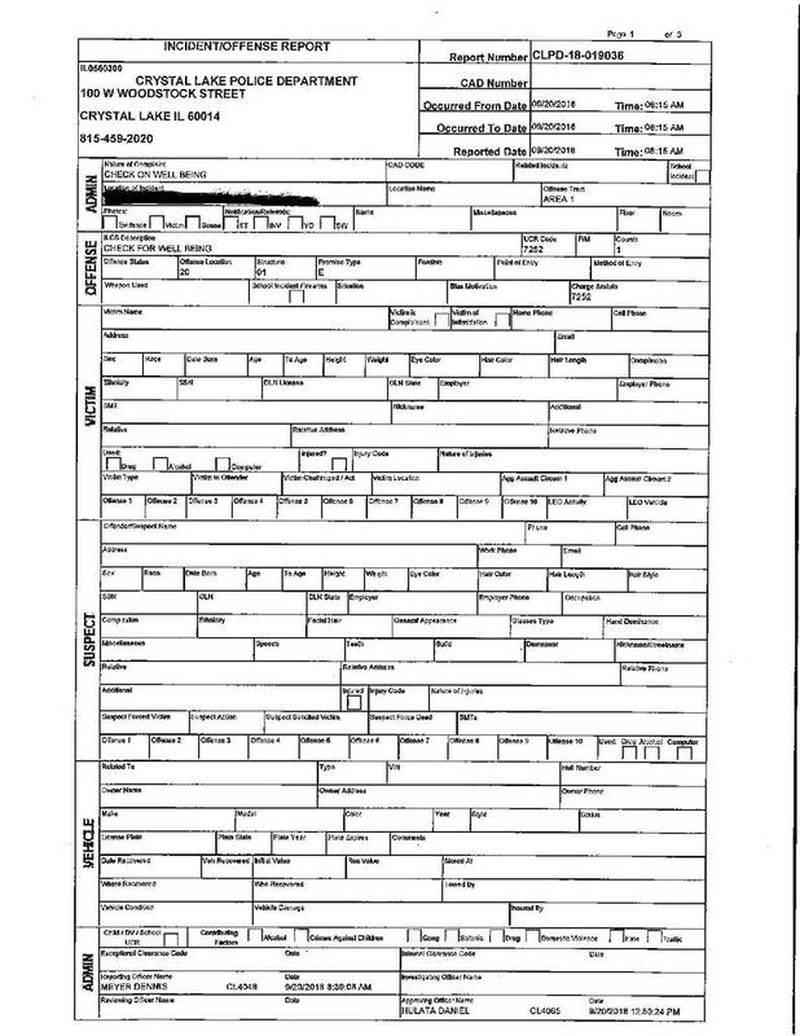 Page 1 of 3
INCIDENT/OFFENSE REPORT
Report Number CLPD-18-019036
IL0560300
CRYSTAL LAKE POLICE DEPARTMENT
100 W WOODSTOCK STREET
CAD Number
CRYSTAL LAKE IL 60014
Occurred From Date 09/20/2018 Time: 08:15 AM
Occurred To Date 09/20/2018 Time: 08:15 AM
815-459-2020
Reported Date 09/20/2018 Time: 08:15 AM
ADMIN
Nature of Complaint CAD CODE Related Incidents School Incident
CHECK ON WELL BEING
Location of Incident Location Name Offense Tract
AREA 1
Photos: Notification/Referrals: Name Miscellaneous Floor Room
Evidence Victim Scene ET INV YO SW
OFFENSE
ILCS Description UCR Code Counts
CHECK FOR WELL BEING 7252 1
Offense Status Offense Location Structure Premise Type Point of Entry Method of Entry
20 01 E
Weapon Used School Incident Firearms Situation Bias Motivation Charge Statute
7252
VICTIM
Victim Name Victim is Complainant Victim of Intimidation Home Phone Cell Phone
Address Email
Sex Race Date Born Age To Age Height Weight Eye Color Hair Color Hair Length Complexion
Ethnicity SSN DLN License DLN State Employer Employer Phone
SMT Nickname Additional
Relative Relative Address Relative Phone
Used: Drug Alcohol Computer Injured? Injury Code Nature of Injuries
Victim Type Victim to Offender Victim Location Agg Assault Circum 1 Agg Assault Circum 2
Offense 1 Offense 2 Offense 3 Offense 4 Offense 5 Offense 6 Offense 7 Offense 8 Offense 9 Offense 10 LEO Activity LEO Vehicle
SUSPECT
Offender/Suspect Name Phone Cell Phone
Address Work Phone Email
Sex Race Date Born Age To Age Height Weight Eye Color Hair Color Hair Length Hair Style
SSN DLN DLN State Employer Employer Phone Occupation
Complexion Ethnicity Facial Hair General Appearance Glasses Type Hand Dominance
Miscellaneous Speech Teeth Build Demeanor Nickname/Streetname
Relative Relative Address Relative Phone
Additional Injured Injury Code Nature of Injuries
Suspect Forced Victim Suspect Action Suspect Solicited Victim Suspect Force Used SMTs
Offense 1 Offense 2 Offense 3 Offense 4 Offense 5 Offense 6 Offense 7 Offense 8 Offense 9 Offense 10 Used: Drug Alcohol Computer
VEHICLE
Related To Type VIN Hull Number
Owner Name Owner Address Owner Phone
Make Model Color Year Style Status
License Plate Plate State Plate Year Plate Expires Comments
Date Recovered Veh Recovered Initial Value Rec Value Stored At
Where Recovered Who Recovered Towed By
Vehicle Condition Vehicle Damage Insured By
ADMIN
Child / DV / School UCR Contributing Factors Alcohol Crimes Against Children Gang Satanic Drug Domestic Violence Hate Traffic
Exceptional Clearance Code Date Internal Clearance Code Date
Reporting Officer Name Date Investigating Officer Name
MEYER DENNIS CL4048 9/20/2018 8:39:08 AM
Reviewing Officer Name Date Approving Officer Name Date
HULATA DANIEL CL4065 9/20/2018 12:50:24 PM